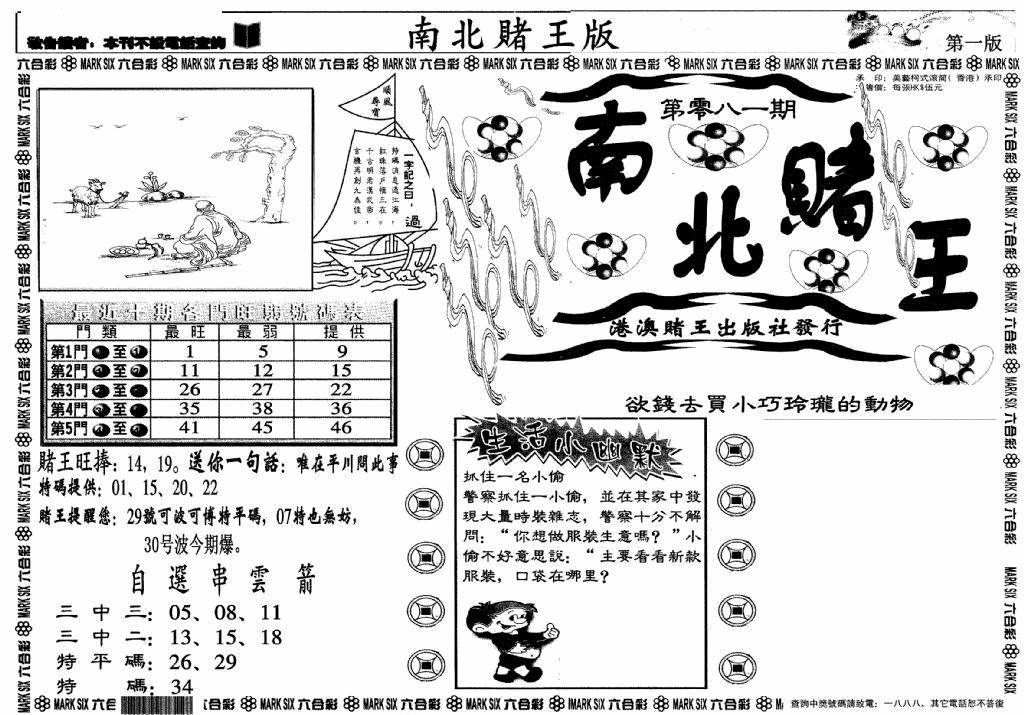 敬告讀者：本刊不設電話查詢
南北賭王版
第一版
六合彩 MARK SIX 六合彩 MARK SIX 六合彩 MARK SIX 六合彩 MARK SIX 六合彩 MARK SIX 六合彩 MARK SIX 六合彩 MARK SIX 六合彩 MARK SIX 六合彩 MARK SIX 六合彩 MARK SIX
承 印：美藝柯式滾筒(香港)承印
售價：每張HK$伍元
順風
尋寶
一字記之曰：過
特碼消息過江海，
紅珠落戶種三在。
千古明老漢武帝，
玄機再創九為佳。
第零八一期
南北賭王
港澳賭王出版社發行
欲錢去買小巧玲瓏的動物
最近十期各門旺與號碼表
門 類 最 旺 最 弱 提 供
第1門 至 1 5 9
第2門 至 11 12 15
第3門 至 26 27 22
第4門 至 35 38 36
第5門 至 41 45 46
賭王旺捧：14，19。送你一句話：唯在平川問此事
特碼提供：01、15、20、22
賭王提醒您：29號可波可博特平碼，07特也無妨，
30号波今期爆。
自選串雲箭
三中三：05、08、11
三中二：13、15、18
特平碼：26、29
特 碼：34
生活小幽默
抓住一名小偷
警察抓住一小偷，並在其家中發
現大量時裝雜志，警察十分不解
問：“你想做服裝生意嗎？”小
偷不好意思說：“主要看看新款
服裝，口袋在哪里？
查詢中獎號碼請致電：一八八八、其它電話恕不答復